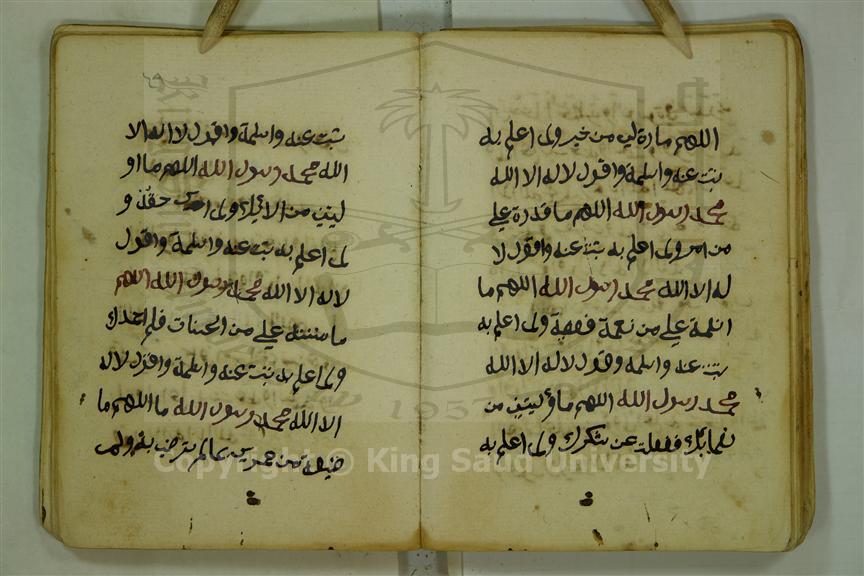 اللهم ما ردة لي من خير ولم اعلم به
تبت عنه واسلمة واقول لا له الا الله
محمد رسول الله اللهم ما قدرة علي
من امر ولم اعلم به تبت عنه واقول لا
له الا الله محمد رسول الله اللهم ما
انعمة علي من نعمة فغفلة ولم اعلم به
تبت عنه واسلمة وقول لا له الا الله
محمد رسول الله اللهم ما وليتني من
نعمايك فغفلة عن شكرك ولم اعلم به
تبت عنه واسلمة واقول لا اله الا
الله محمد رسول الله اللهم ما او
ليتني من الا ولم حقه و
لم اعلم به تبت عنه واسلمة واقول
لا له الا الله محمد رسول الله اللهم
ما مننته علي من الحسنات فلم احمدك
ولم اعلم به تبت عنه واسلمة واقول لا له
الا الله محمد رسول الله ما اللهم ما
من عمري بما لم ترضى به ولم
Copyright © King Saud University
1957